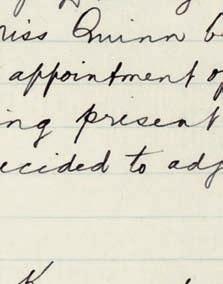 iss Quinn b
appointment of
ing present
ecided to adj
K